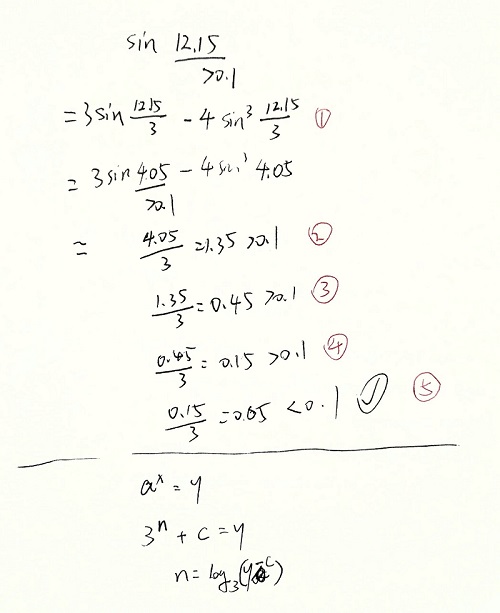 sin 12.15
>0.1
= 3 sin 12.15/3 - 4 sin³ 12.15/3 ①
= 3 sin 4.05 - 4 sin³ 4.05
>0.1
≈ 4.05/3 = 1.35 >0.1 ②
1.35/3 = 0.45 >0.1 ③
0.45/3 = 0.15 >0.1 ④
0.15/3 = 0.05 <0.1 ✓ ⑤
aˣ = y
3ⁿ + c = y
n = log₃(y-c)